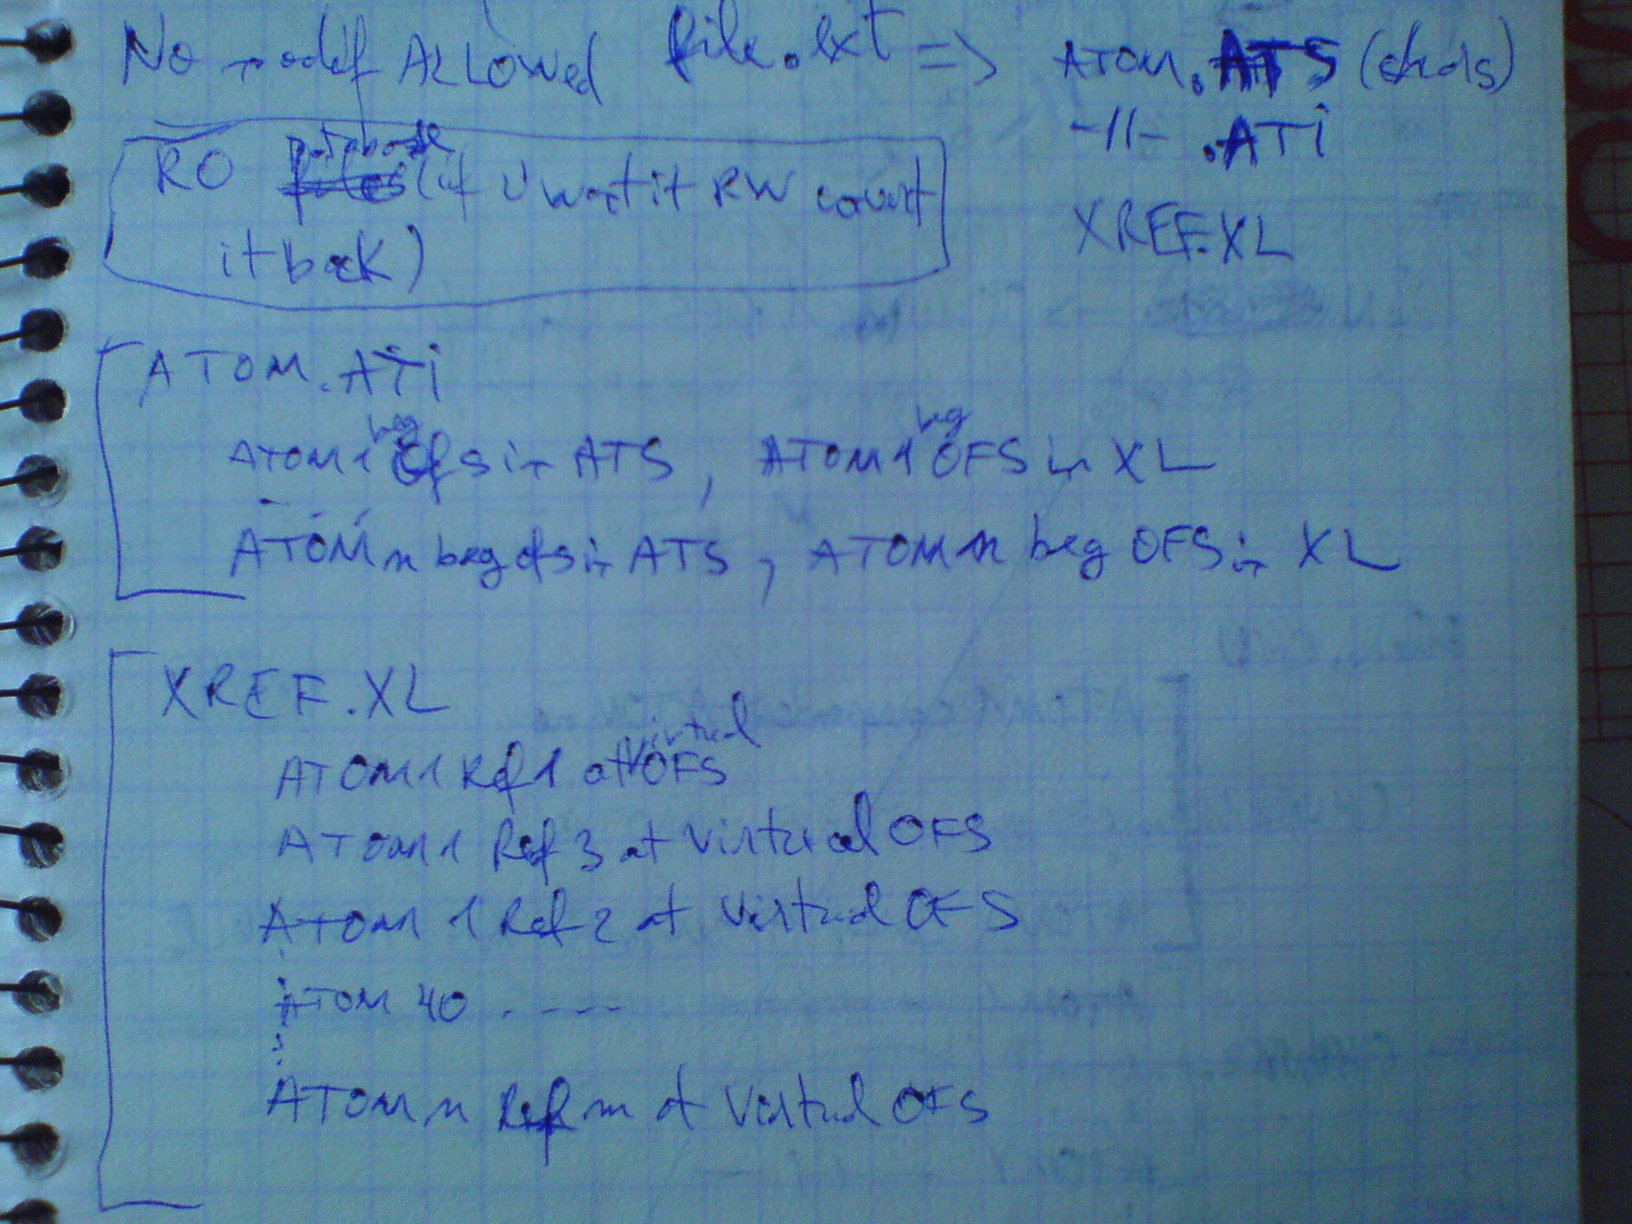 No modif ALLOWed file.txt => ATOM.ATS (
-//- .ATi
RO database (if U want it RW convert
it back)
XREF.XL
ATOM.ATi
ATOM1 beg Ofs in ATS, ATOM1 beg OFS in XL
. . .
ATOMn beg ofs in ATS, ATOMn beg OFS in XL
XREF.XL
ATOM1 Ref1 at virtual OFS
ATOM1 Ref 3 at Virtual OFS
ATOM1 Ref 2 at Virtual OFS
ATOM 40 . - - - -
ATOMn Ref m at Virtual OFS